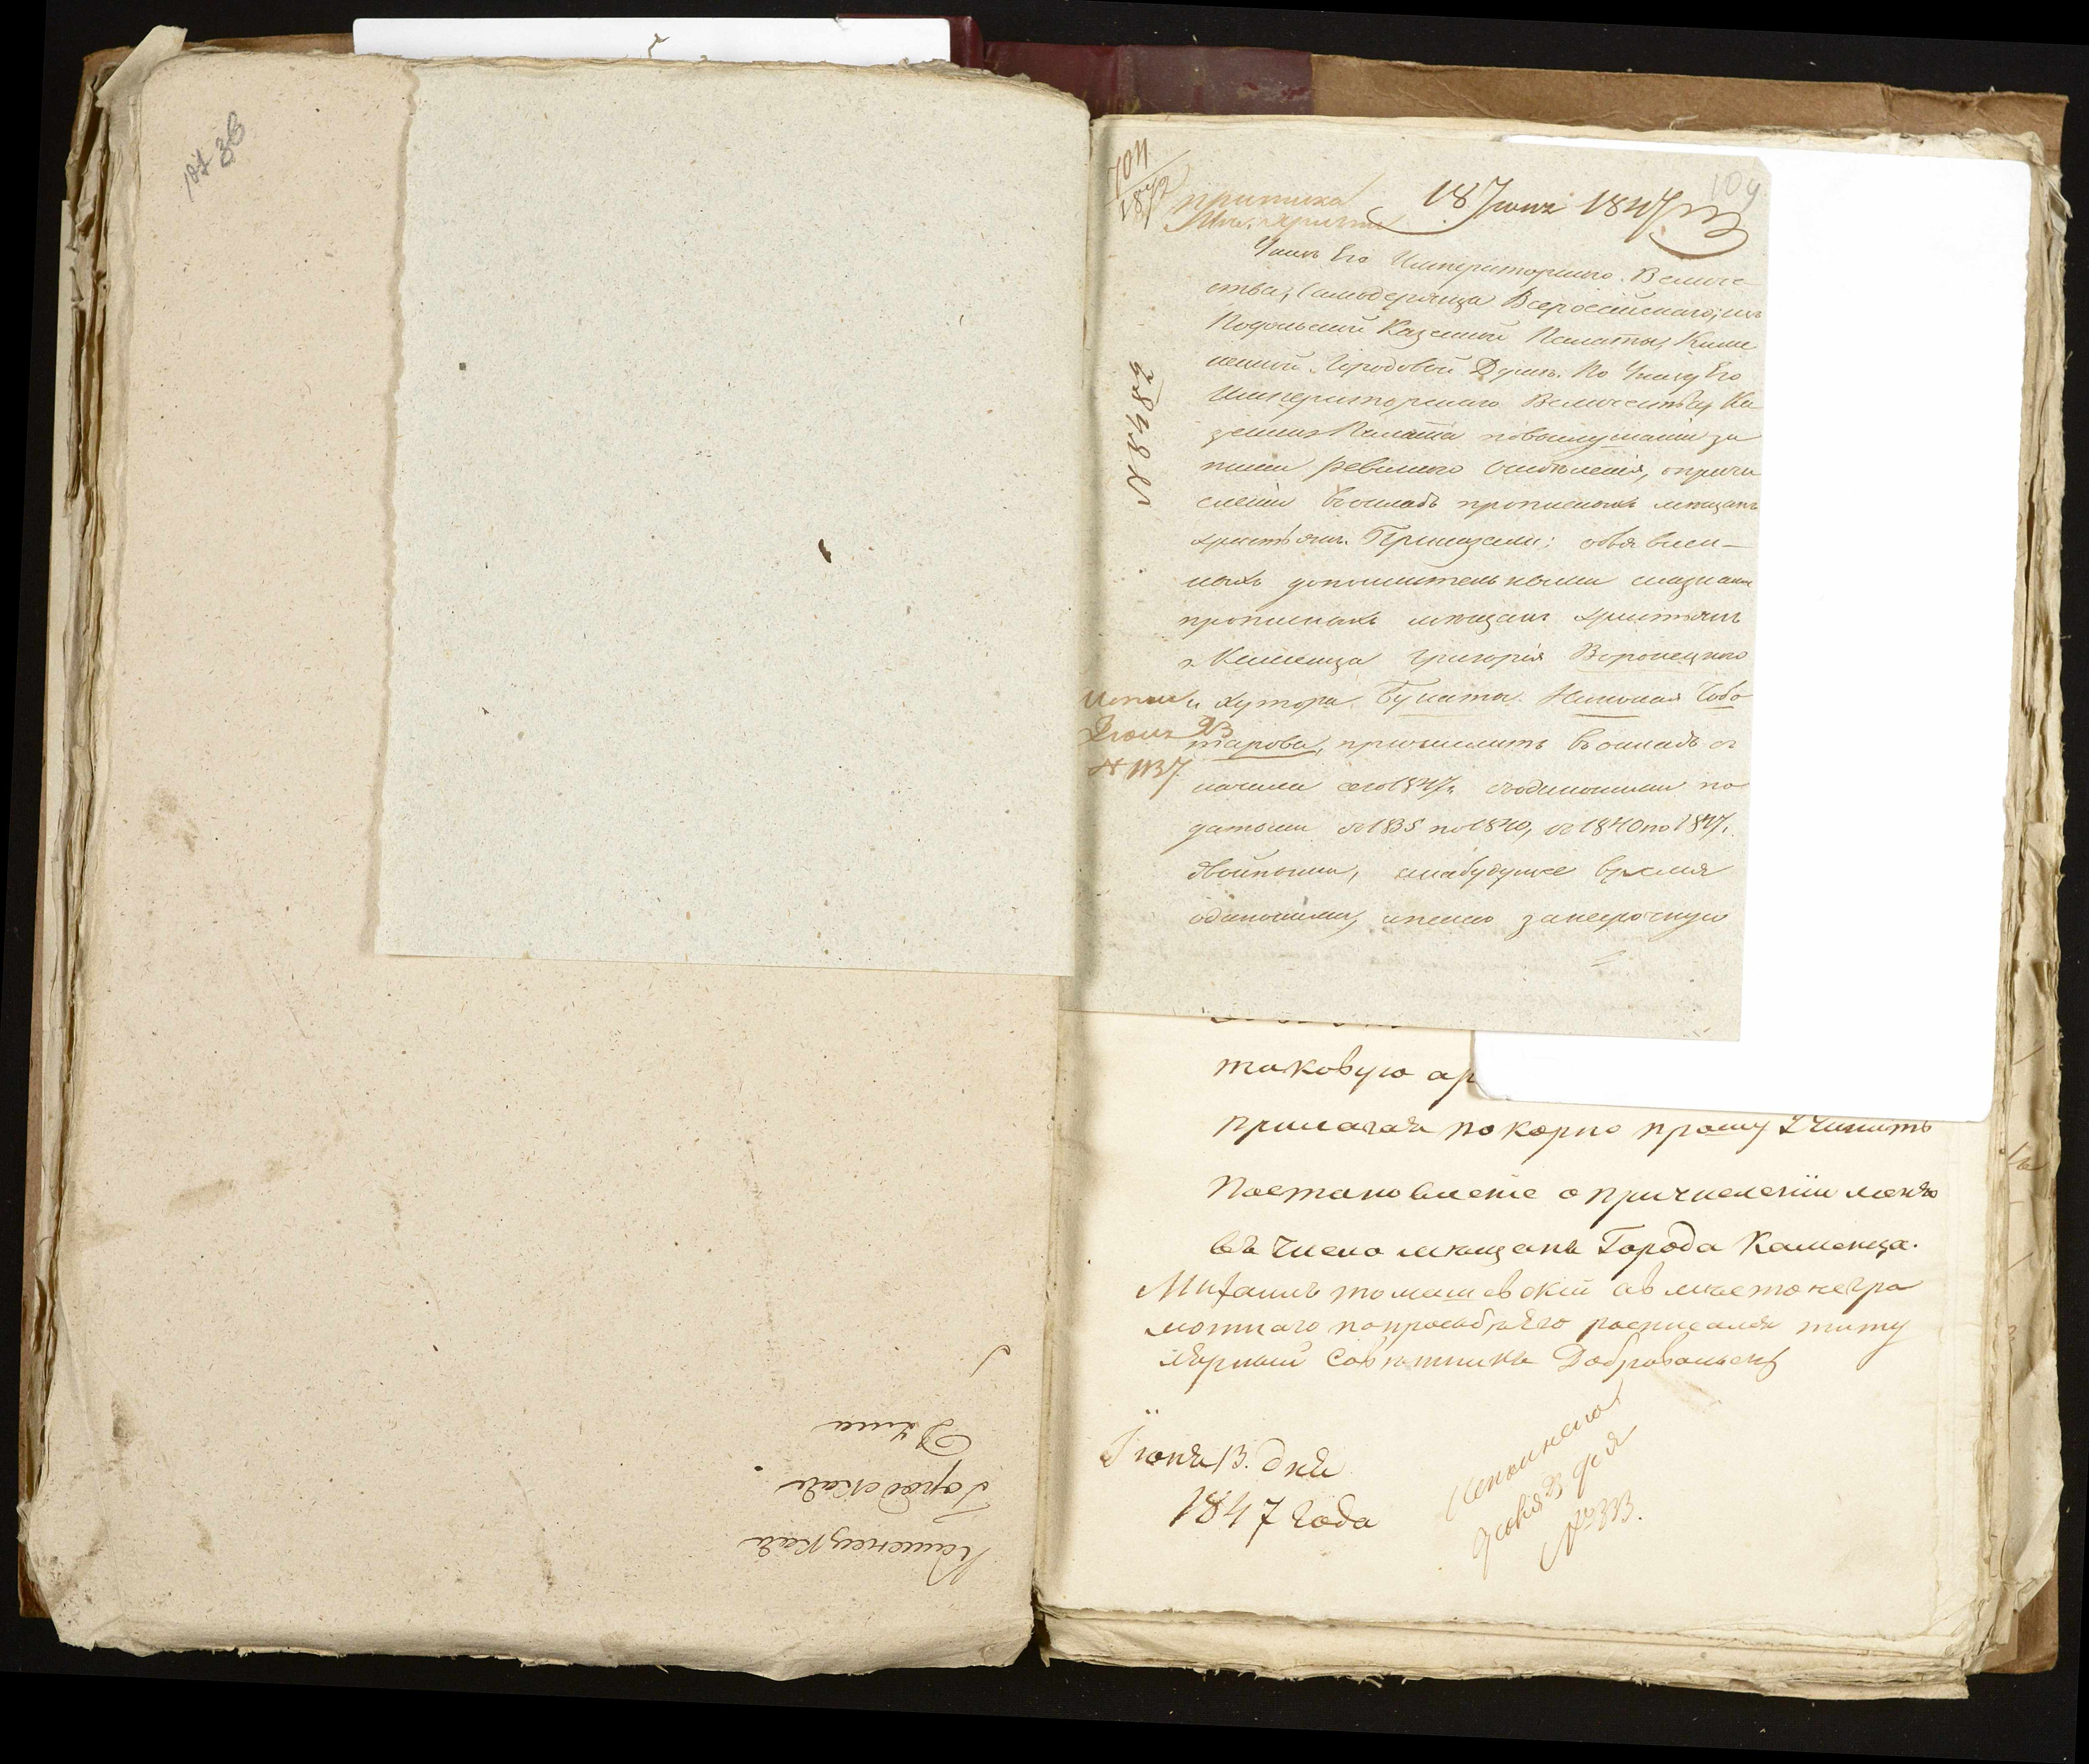 104
1847
прописка
18 Іюня 1847
109
Указъ Его Императорскаго Величе
ства, Самодержца Всероссійскаго, изъ
Подольской Казенной Палаты, Каме
нецкой Городовой Думѣ. По Указу Его
Императорскаго Величества, Ка
зенная Палата по выслушаніи за
писки ревизкаго Отдѣленія, о причи
сленіи въ окладъ прописныхъ мѣщанъ
христіянъ. Приказали: объявлен-
ныхъ дополнительными сказками
прописныхъ мѣщанъ христіянъ
г. Каменца Григорія Воронецкаго
и хутора Буната Николая Чобо
тарова, причислить въ окладъ съ
начала сего 1847 г. съ одинокими по
датьми съ 1835 по 1840, съ 1840 по 1847.
двойными, а на будущее время
одинокими, и пеню за несрочную
28482
Іюня 23
№ 1137
таковую
прилагая покорно прошу Учинить
Постановленіе о причисленіи меня
въ число мѣщанъ Города Каменца.
Михаилъ Томашевскій а вместо негра
мотнаго по просьбѣ его росписался титу
лярный Совѣтникъ Добровольск
Іюня 13. дня
1847 Года
№ 333.
Каменецкая
Городская
Дума